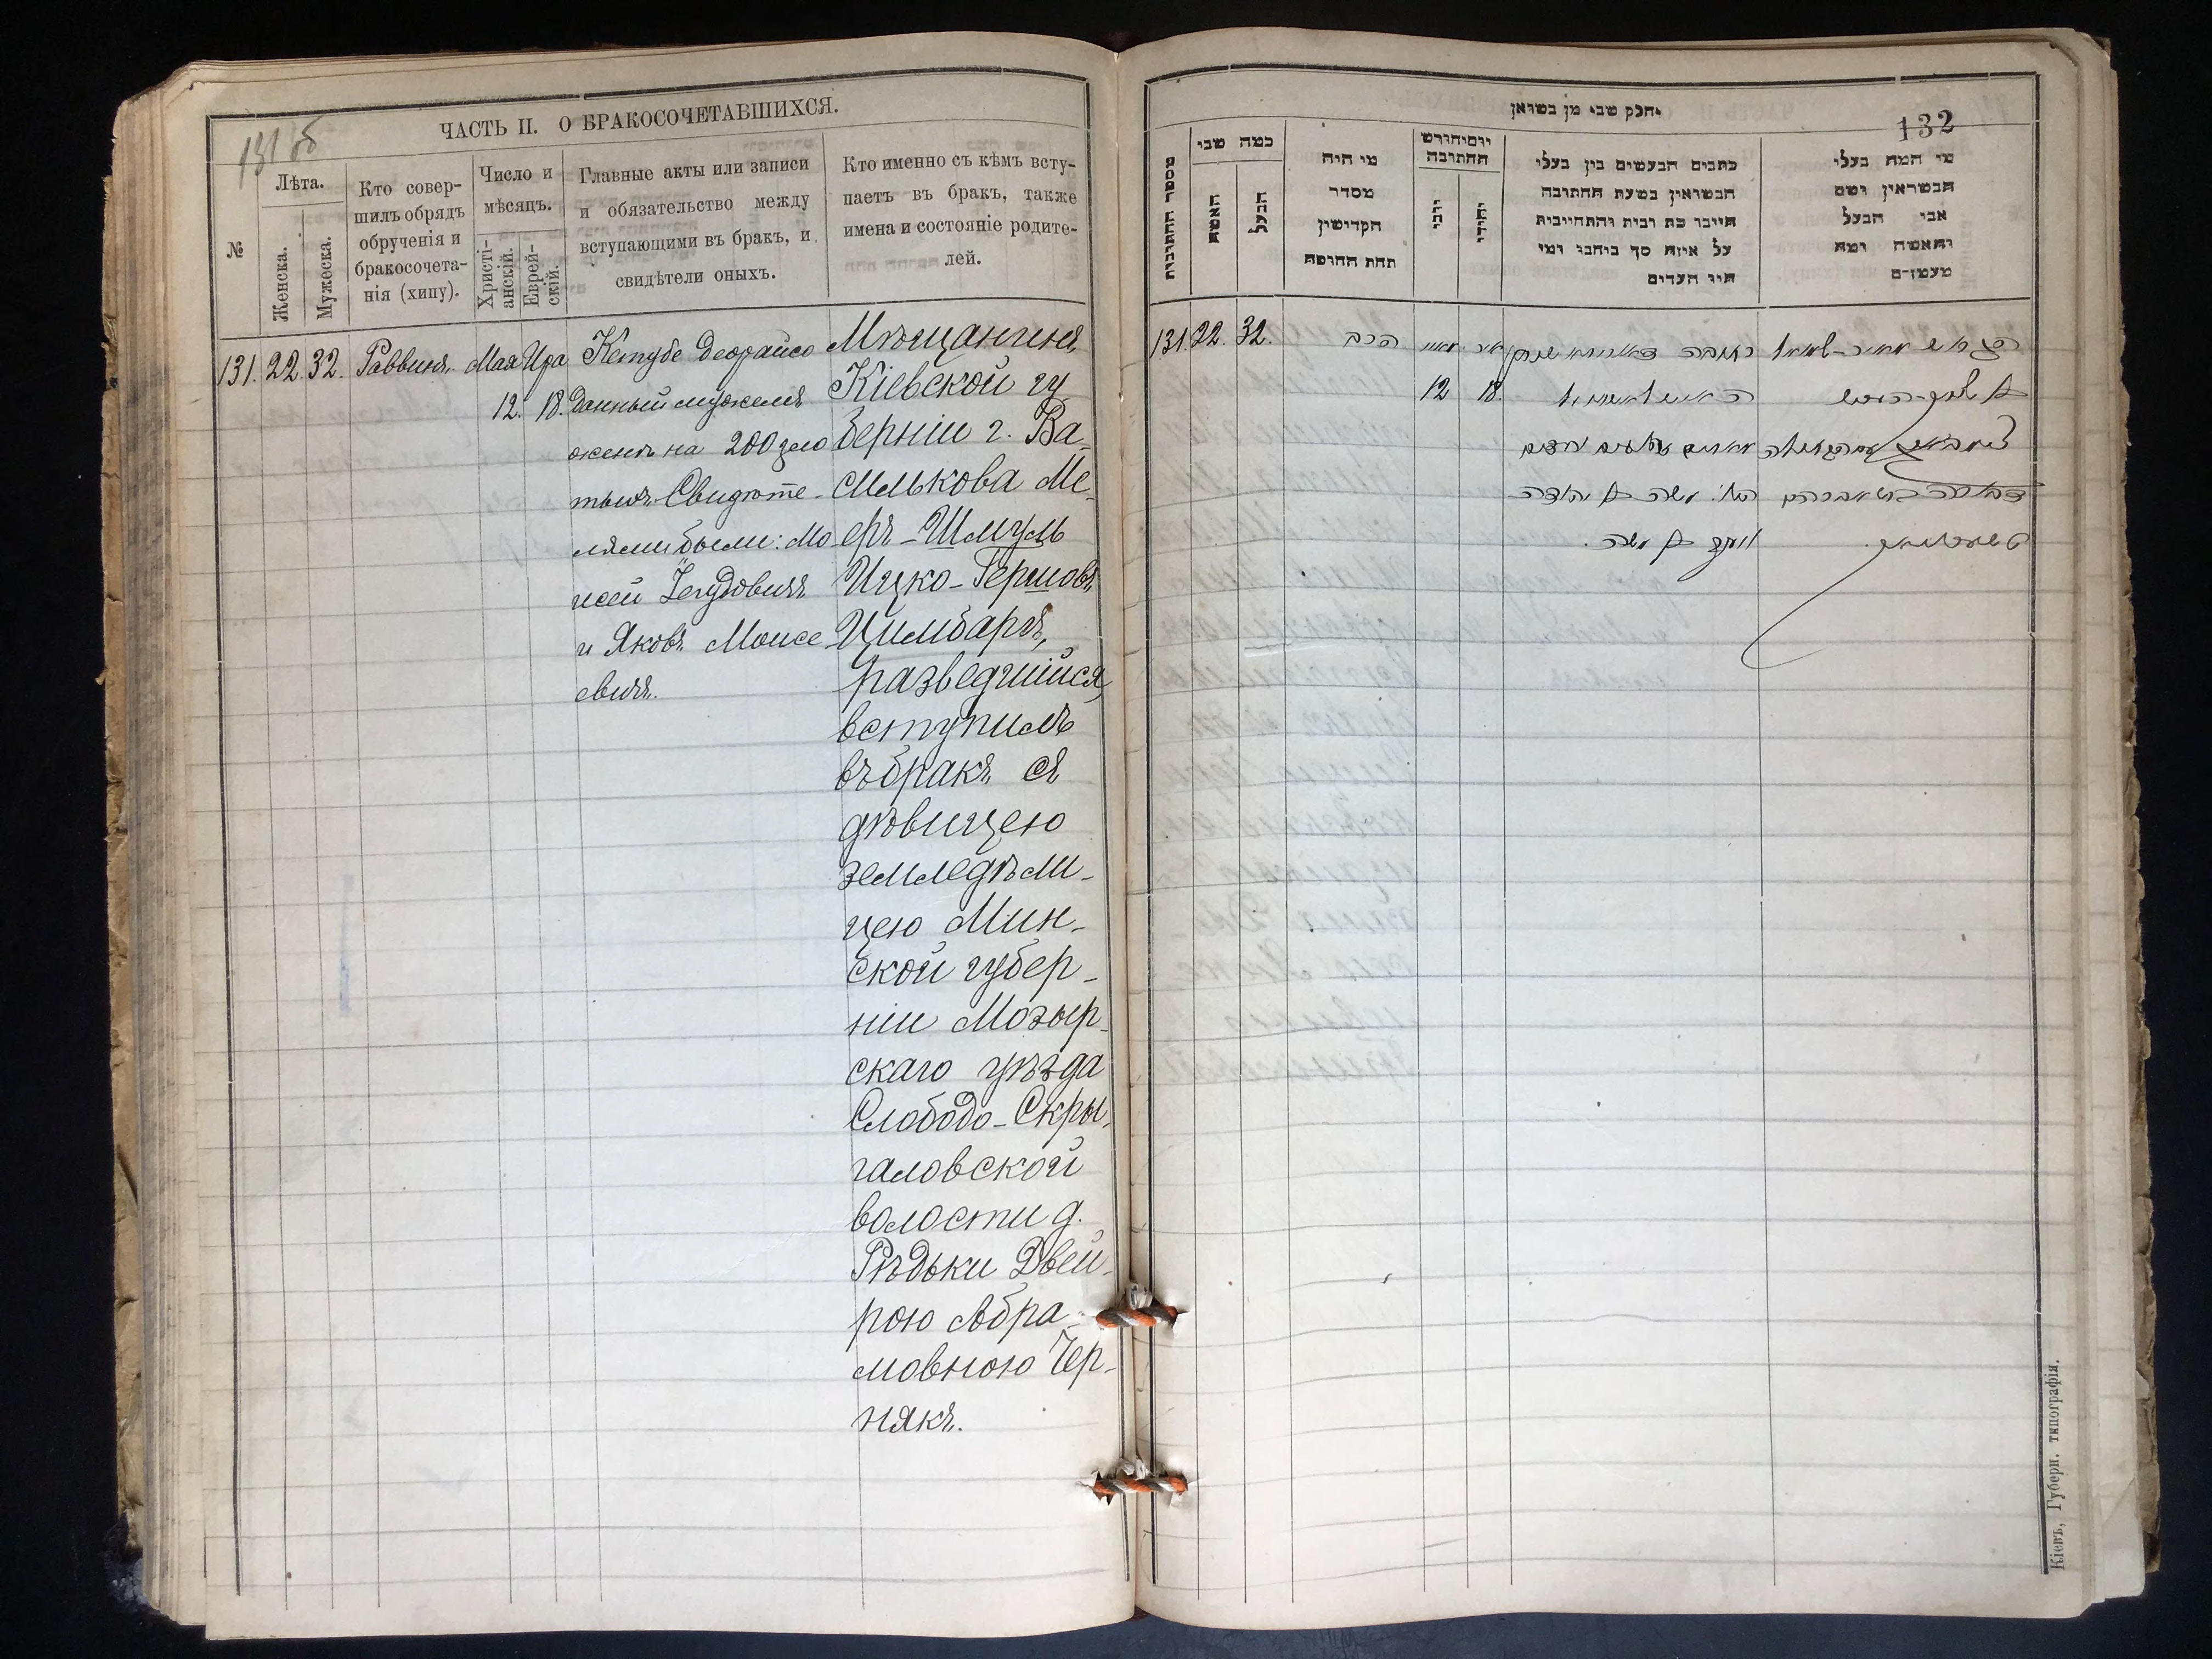 131 об
ЧАСТЬ II. О БРАКОСОЧЕТАВШИХСЯ.
№
Лѣта.
Женска.
Мужеска.
Кто совер-
шилъ обрядъ
обрученія и
бракосочета-
нія (хипу).
Число и
мѣсяцъ.
Христі-
анскій.
Еврей-
скій.
Главные акты или записи
и обязательство между
вступающими въ бракъ, и
свидѣтели оныхъ.
Кто именно съ кѣмъ всту-
паетъ въ бракъ, также
имена и состояніе родите-
лей.
131. 22. 32. Раввинъ. Мая Ира
12. 18.
Кетубе деорайсо
данный мужемъ
женѣ на 200 зло
тыхъ. Свидѣте-
лями были: Мо
исей Іегудовичъ
и Яковъ Моисе
евичъ.
Мѣщанинъ
Кіевской гу
берніи г. Ва-
силькова Ме-
еръ-Шмуль
Ицко-Гершовъ
Цимбаръ,
разведшійся,
вступилъ
въ бракъ съ
дѣвицею
земледѣли-
цею Мин-
ской губер-
ніи Мозыр-
скаго уѣзда
Слободо-Скры-
галовской
волости д.
Рѣдьки Двей-
рою Абра-
мовною Чер-
някъ.
חלק שני מן נשואין
132
מספר החתונות
כמה שני
האשה
הבעל
מי היה
מסדר
הקדישין
תחת החופה
יום וחודש
החתונה
יהודי
כתבים הנעשים בין בעלי
הנשואין בשעת החתונה
על איזה סך ניתנו ומי
היו העדים
מי המה בעלי
הנשואין ושם
אבי הבעל
והאשה ומה
מעמדם
131. 22. 32. הרב
12 18.
Кіевъ, Губерн. типографія.